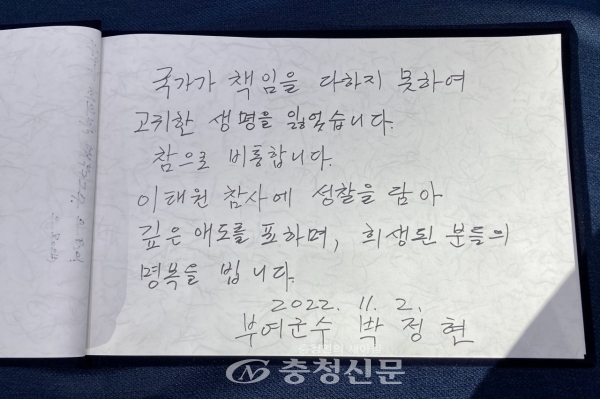 국가가 책임을 다하지 못하여
고귀한 생명을 잃었습니다.
참으로 비통합니다.
이태원 참사에 성찰을 담아
깊은 애도를 표하며, 희생된 분들의
명복을 빕니다.
2022. 11. 2.
부여군수 박정현
충청신문